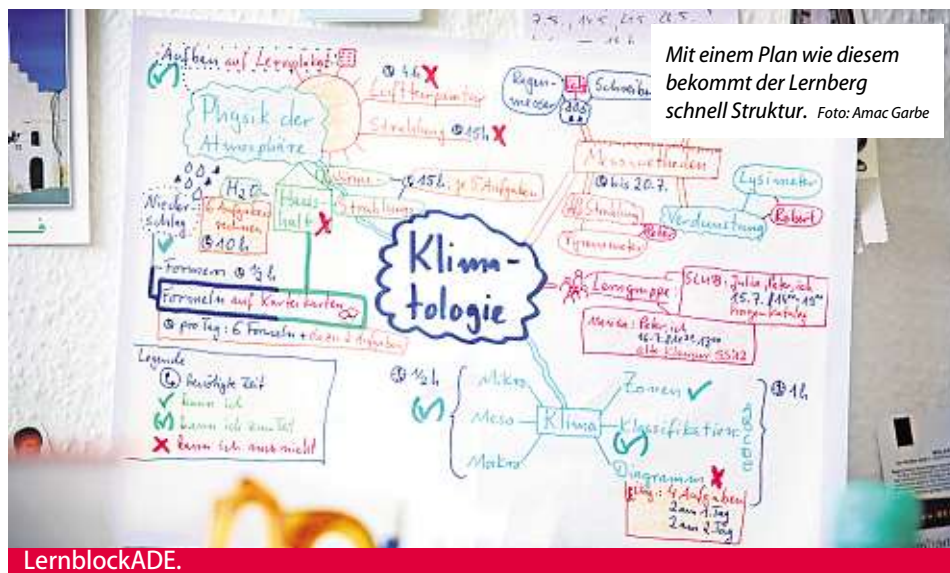 Mit einem Plan wie diesem
bekommt der Lernberg
schnell Struktur. Foto: Amac Garbe
Aufbau auf Lernplakat:
Physik der
Atmosphäre
4 h
Lufttemperatur
Strahlung 15 h
Wärme 15 h, je 5 Aufgaben
Strahlung
Haus-
halt
H2O
6 Aufgaben
rechnen
10 h
Nieder-
schlag
Formeln ½ h
Formeln auf Karteikarten
pro Tag: 6 Formeln + 2 Aufgaben
Legende
benötigte Zeit
kann ich
kann ich
kann ich noch nicht
Klima-
tologie
Regen-
messer
Schreiber
Messmethoden
bis 20.7.
Strahlung
Peter
Pyranometer
Verdunstung
Lysimeter
Robert
Lerngruppe
SLUB: Julia, Peter, ich
15.7.
Fragenkatalog
Peter, ich
16.7.
alte Klausur SS12
½ h
Mikro
Meso
Makro
Klima
Zonen
Klassifikation
A
B
C
D
E
Diagramm
1 h
4 Aufgaben
2 am 1. Tag
2 am 2. Tag
LernblockADE.